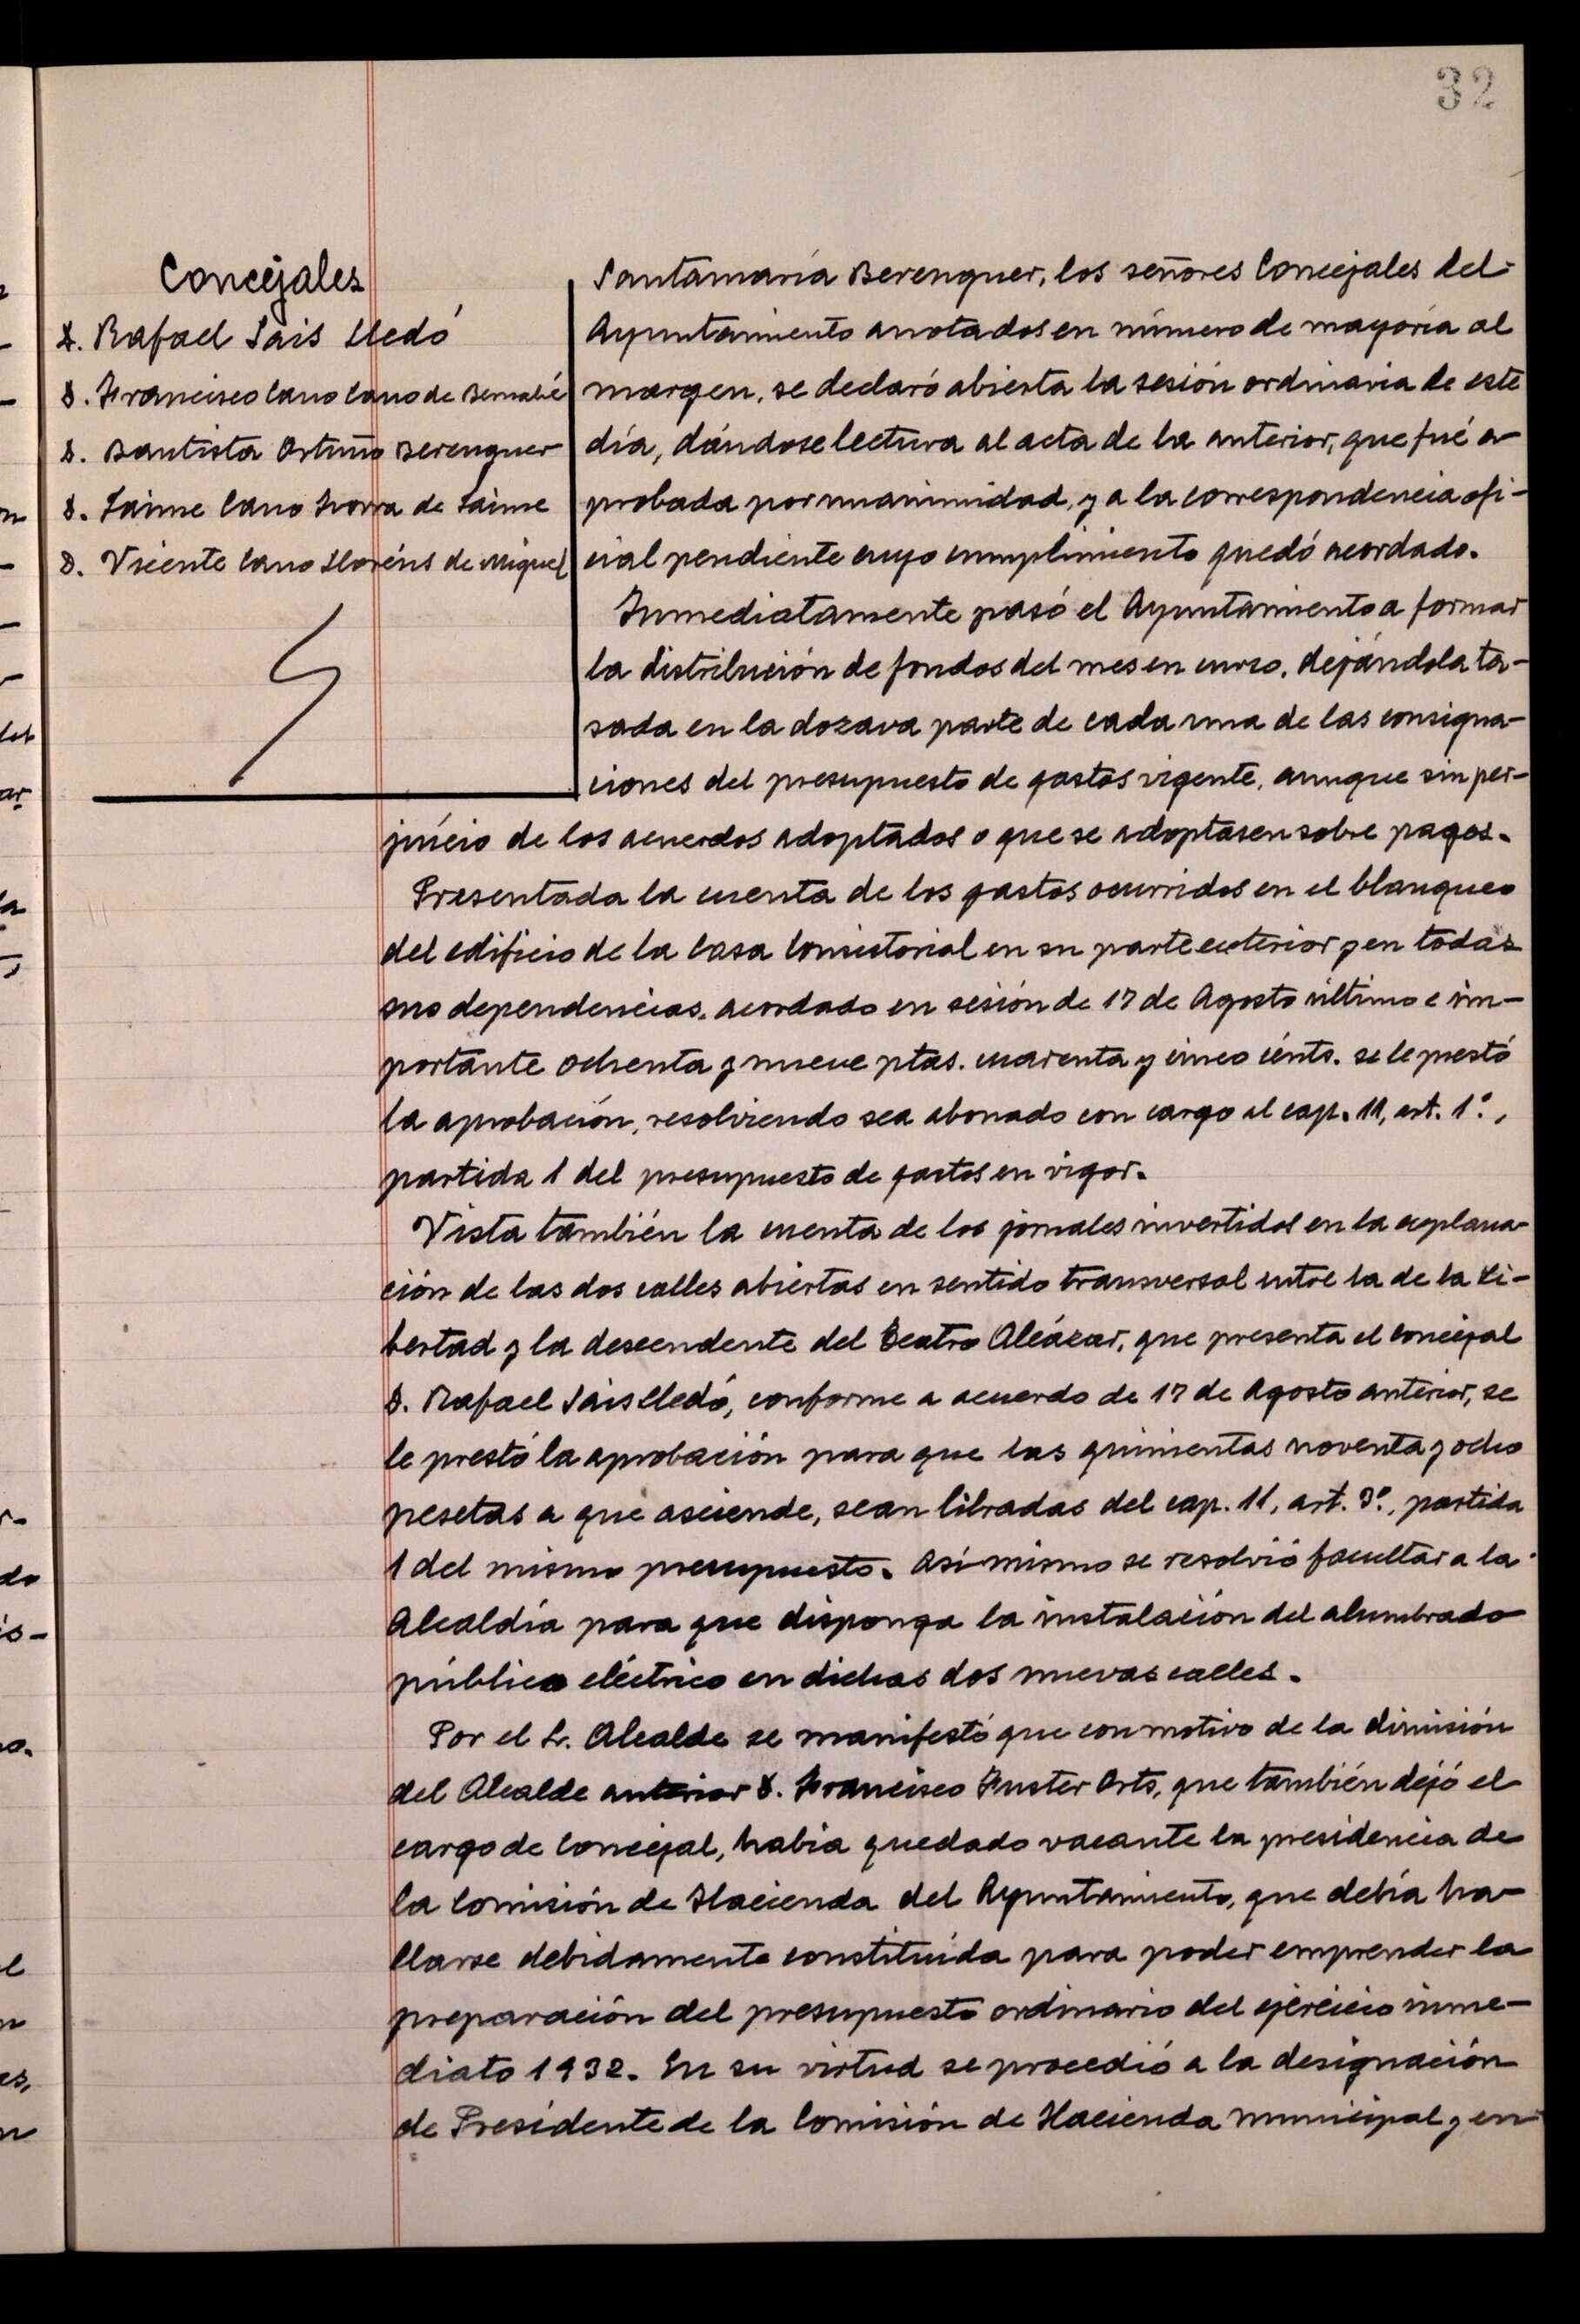 32
Concejales
D. Rafael Sais Lledó
D. Francisco Cano Cano de Bernabé
D. Bautista Ortuño Berenguer
D. Jaime Cano Ivorra de Jaime
D. Vicente Cano Lloréns de Miguel
Santamaría Berenguer, los señores Concejales del
Ayuntamiento anotados en número de mayoría al
margen, se declaró abierta la sesión ordinaria de este
día, dándose lectura al acta de la anterior, que fué a-
probada por unanimidad, y a la correspondencia ofi-
cial pendiente cuyo cumplimiento quedó acordado.
Inmediatamente pasó el Ayuntamiento a formar
la distribución de fondos del mes en curso, dejándola ta-
sada en la dozava parte de cada una de las consigna-
ciones del presupuesto de gastos vigente, aunque sin per-
juício de los acuerdos adoptados o que se adoptasen sobre pagos.
Presentada la cuenta de los gastos ocurridos en el blanqueo
del edificio de la Casa Consistorial en su parte exterior y en todas
sus dependencias, acordado en sesión de 17 de Agosto último e im-
portante ochenta y nueve ptas. cuarenta y cinco cénts. se le prestó
la aprobación, resolviendo sea abonado con cargo al cap. 11, art. 1º,
partida 1 del presupuesto de gastos en vigor.
Vista también la cuenta de los jornales invertidos en la explana-
ción de las dos calles abiertas en sentido transversal entre la de la Li-
bertad y la descendente del Teatro Alcázar, que presenta el Concejal
D. Rafael Sais Lledó, conforme a acuerdo de 17 de Agosto anterior, se
le prestó la aprobación para que las quinientas noventa y ocho
pesetas a que asciende, sean libradas del cap. 11, art. 3º, partida
1 del mismo presupuesto. Así mismo se resolvió facultar a la
Alcaldía para que disponga la instalación del alumbrado
público eléctrico en dichas dos nuevas calles.
Por el Sr. Alcalde se manifestó que con motivo de la dimisión
del Alcalde anterior D. Francisco Fuster Orts, que también dejó el
cargo de Concejal, había quedado vacante la presidencia de
la Comisión de Hacienda del Ayuntamiento, que debía ha-
llarse debidamente constituída para poder emprender la
preparación del presupuesto ordinario del ejercicio inme-
diato 1932. En su virtud se procedió a la designación
de Presidente de la Comisión de Hacienda municipal y en